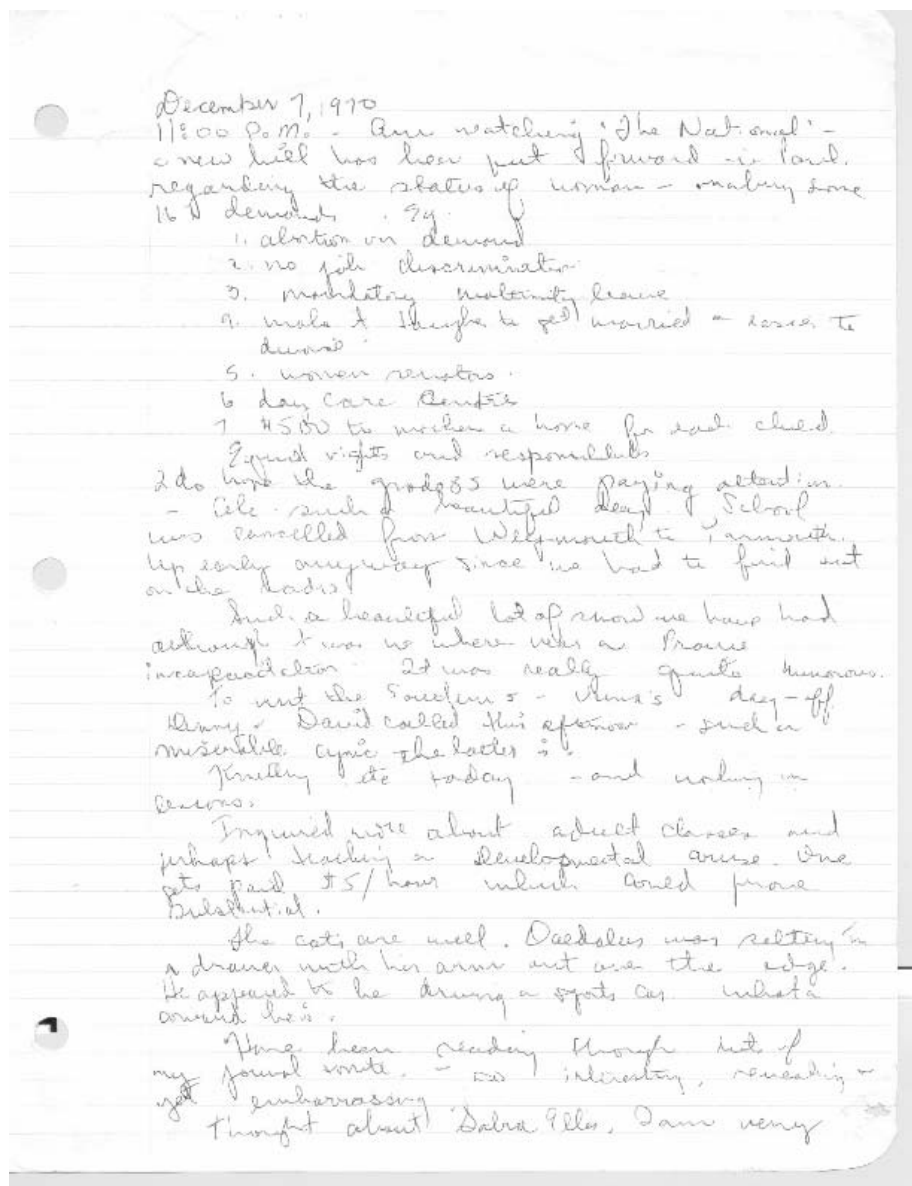 December 7, 1970
11:00 P.M. - Am watching 'The National' -
a new bill has been put forward in Parl.
regarding the status of woman - making some
16 demands. Eg.
1. abortion on demand
2. no job discrimination
3. mandatory maternity leave
4. make it tougher to get married - easier to
divorce
5. women senators.
6 day care centres
7 $500 to mothers a home for each child
Equal rights and responsibilits
I do hope the were paying attention.
- such a beautiful day. School
was cancelled from Weymouth to Yarmouth.
Up early anyway since we had to find out
on the radio.
Such a beautiful lot of snow we have had
although it was no where near a Prairie
It was really quite humorous.
To the - day-off
Danny & David called this afternoon - such a
miserable cynic the latter is.
Knitting etc today - and working on
lessons.
Inquired more about adult classes and
perhaps teaching a Developmental course. One
gets paid $5/hour which could prove
substantial.
The cats are well. Daedalus was sitting in
a drawer with his arm out over the edge.
He appeared to be driving a sports car. What a
he is.
Have been reading through bits of
my journal - so interesting, revealing &
yet embarrassing
Thought about Ellis. I am very